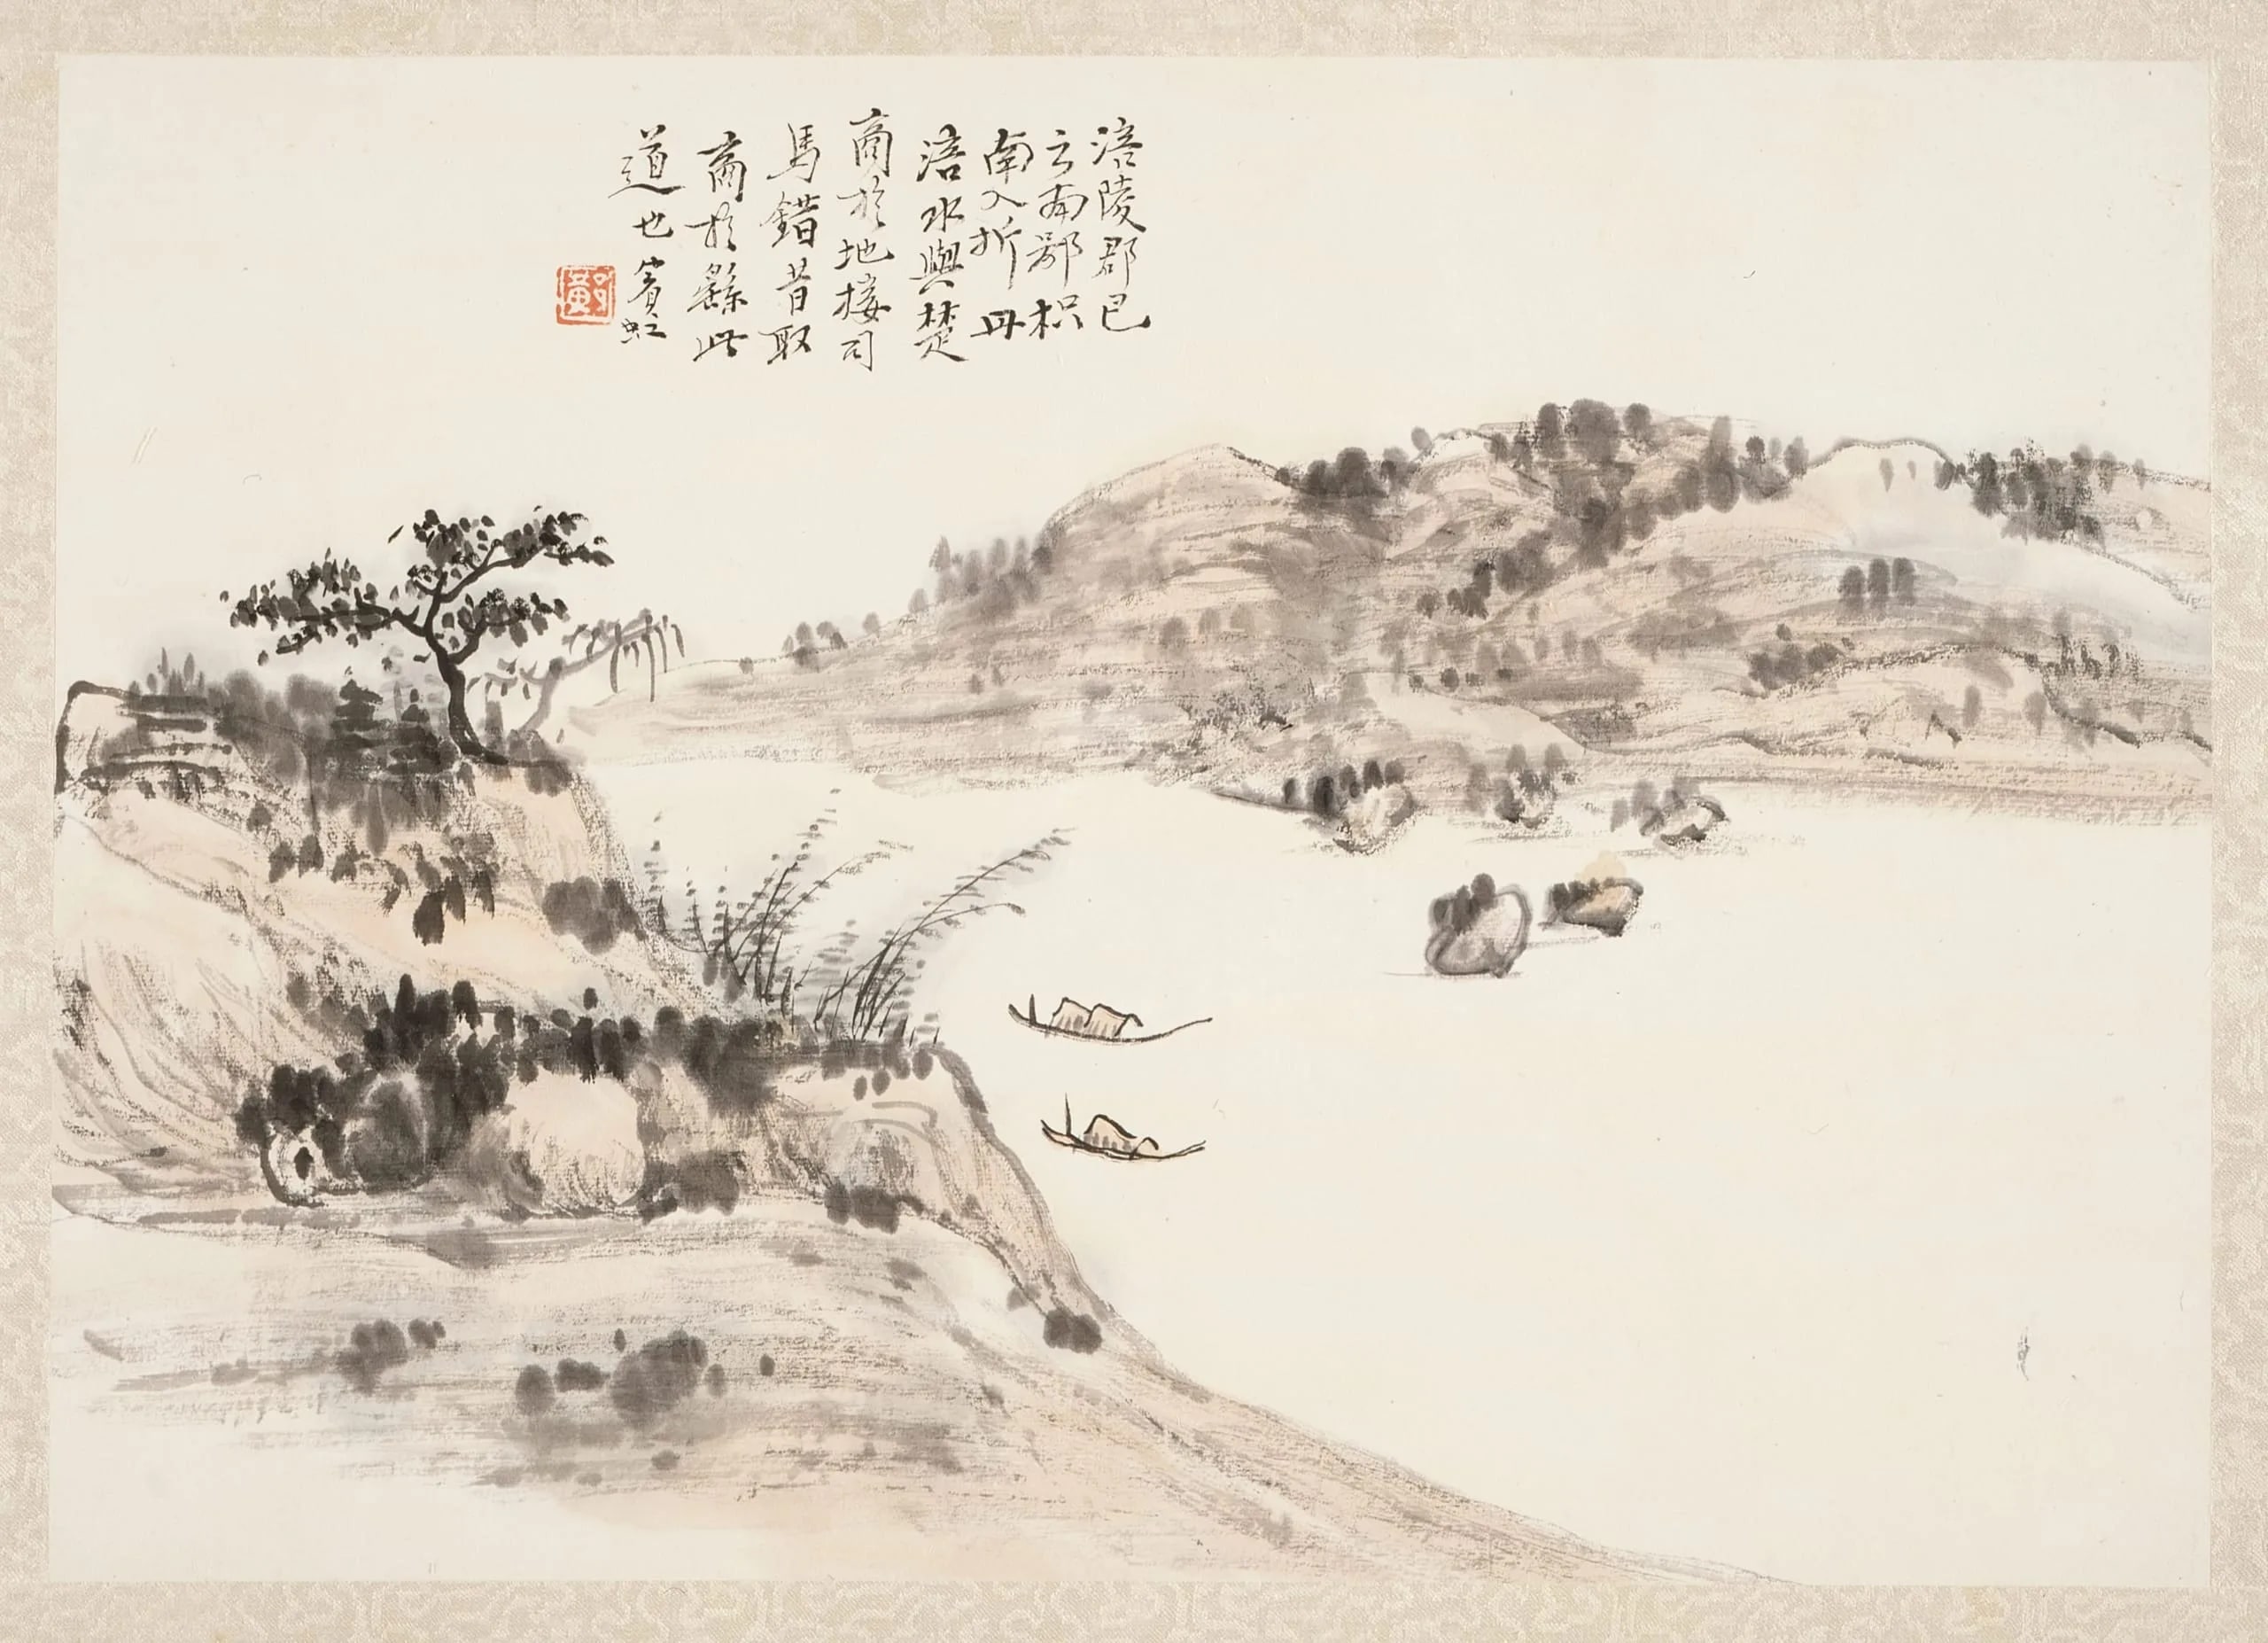 涪陵郡巴
云南鄙枳
南入折丹
涪水與楚
商於地接司
馬錯昔取
商於繇此
道也賓虹
黃